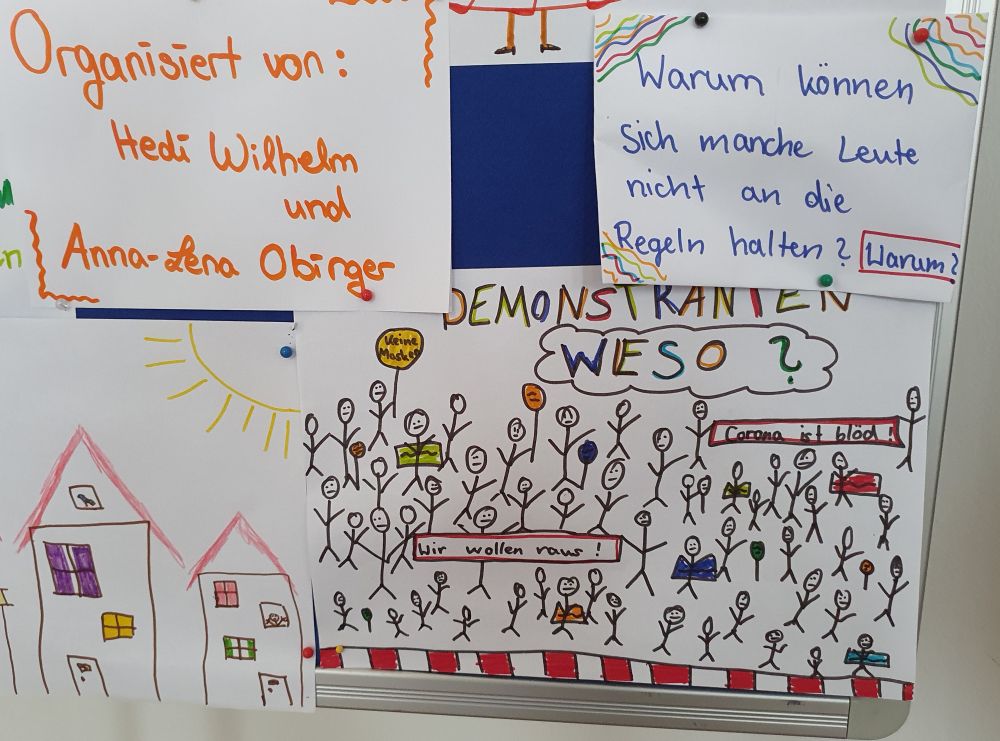 Organisiert von:
Hedi Wilhelm
und
Anna-Lena Obirger
Warum können
sich manche Leute
nicht an die
Regeln halten? Warum?
DEMONSTRANTEN
WIESO ?
Keine
Masken
Corona ist blöd!
Wir wollen raus!